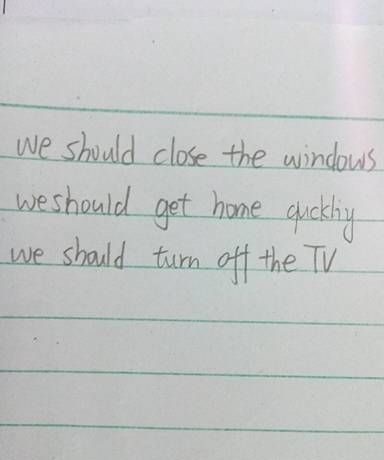 we should close the windows
we should get home quickliy
we should turn off the TV